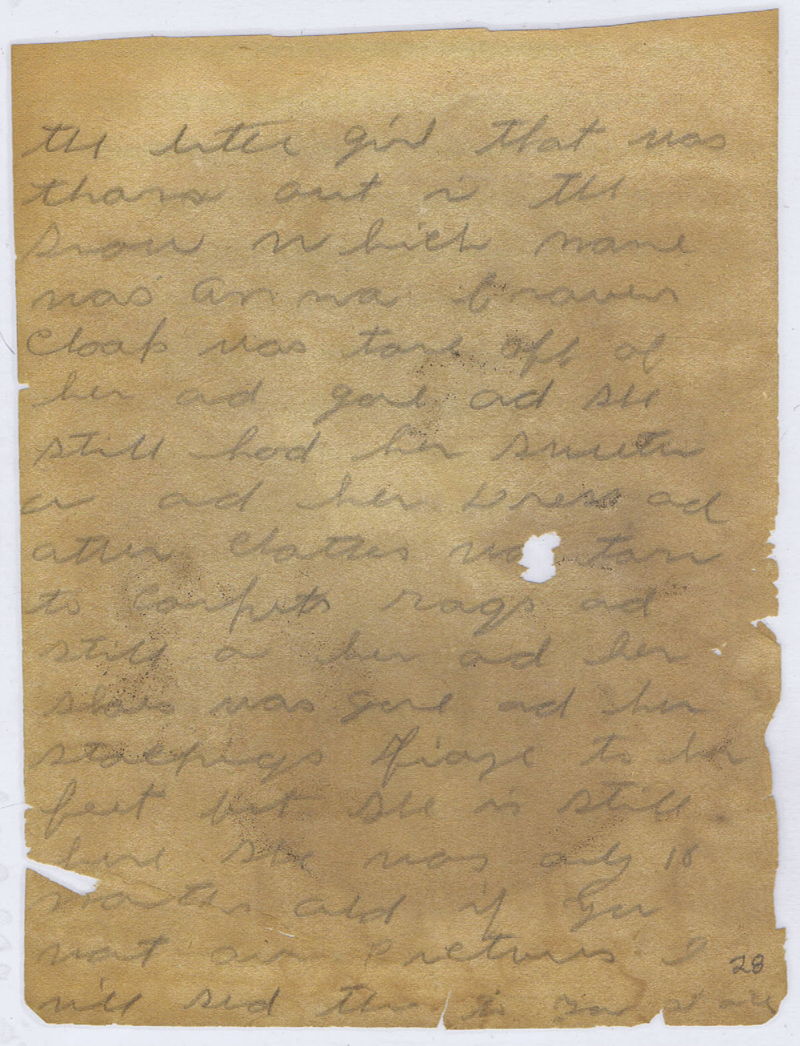 the little girl that was
thrown out in the
snow which name
was Anna braver
Cloak was tore off of
her ad gone ad she
still had her sweeter
on ad her Dress ad
other clothes was torn
to carpets rags ad
still on her ad her
shoes was gone ad her
stockings froze to her
feet but she is still
here she was only 18
months old if you
want our Pictures I
will sed them
28